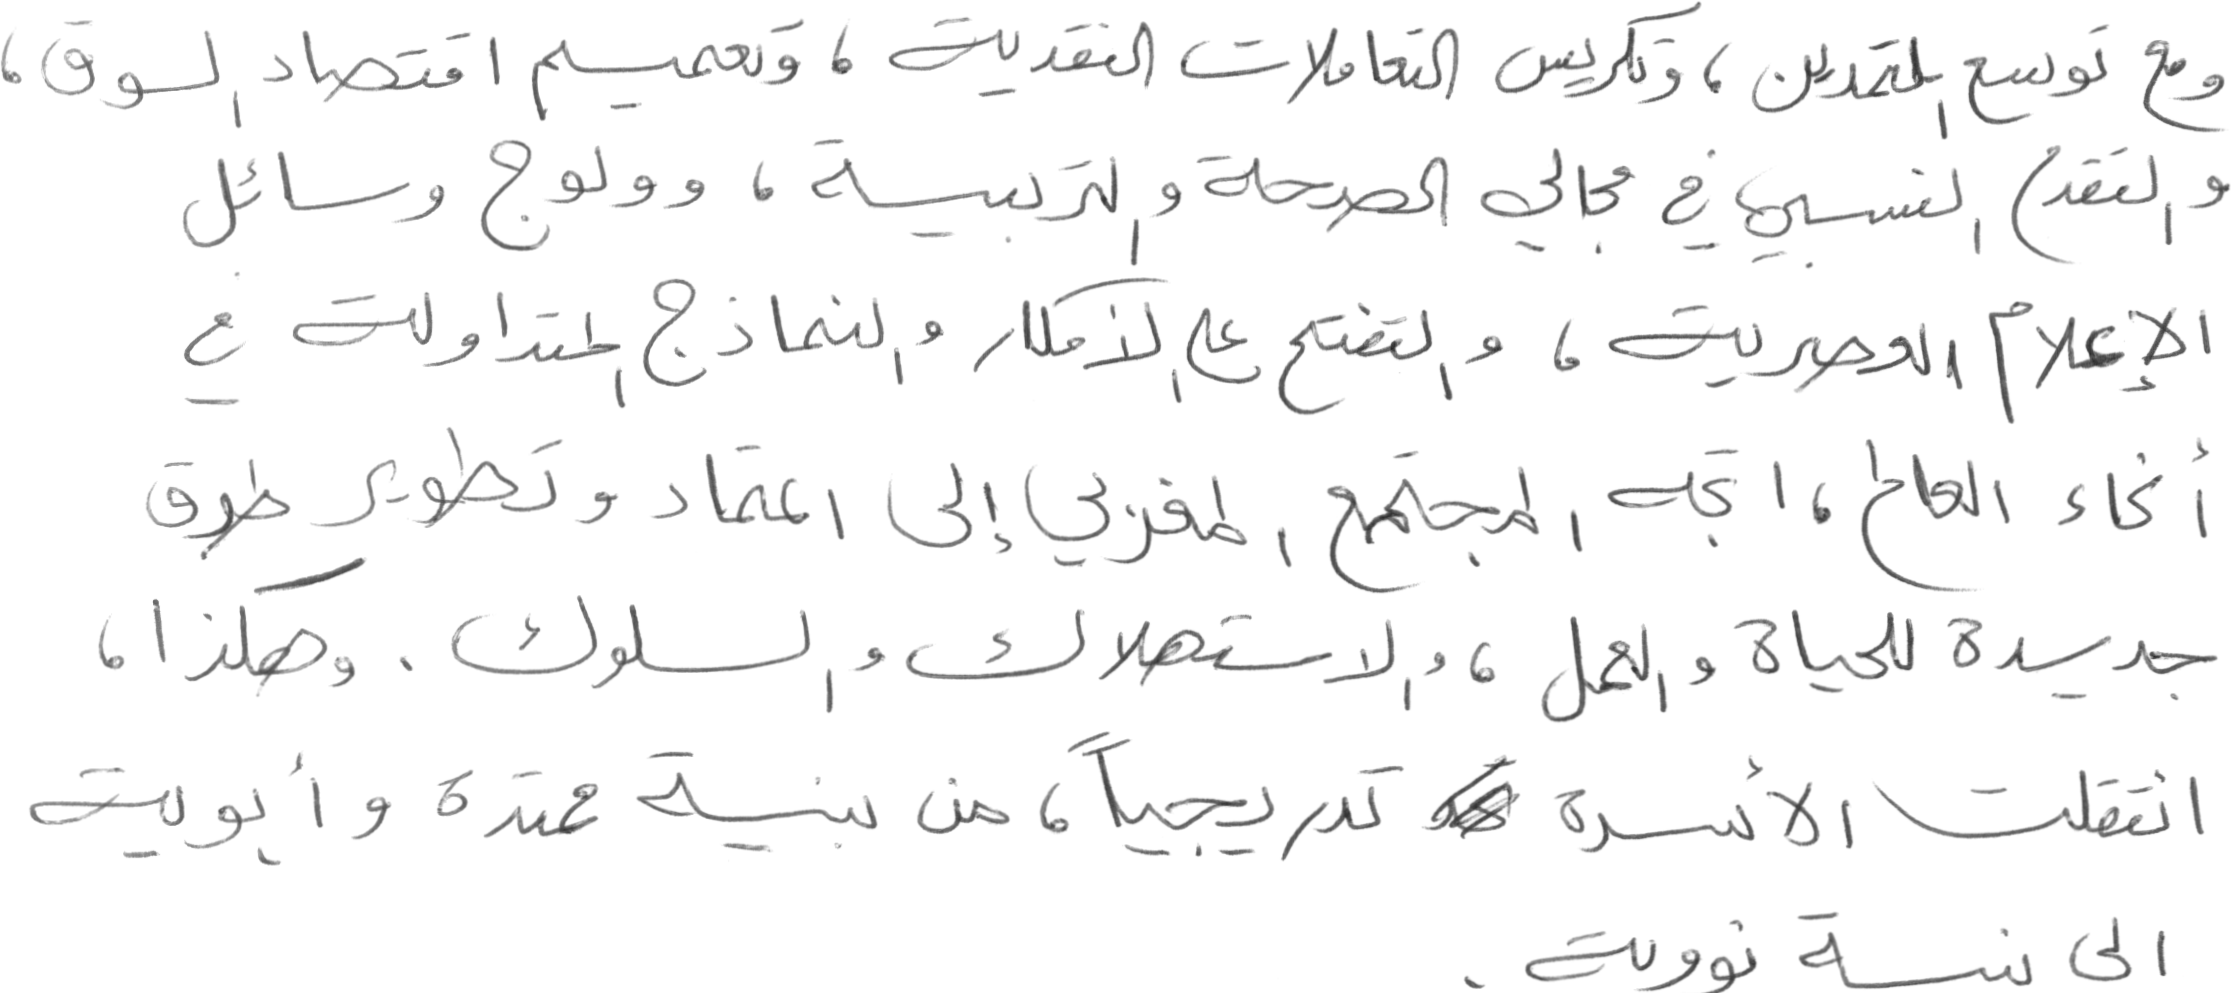 ومع توسع التمدين، وتكريس التعاملات النقدية، وتعميم اقتصاد السوق،
والتقدم النسبي في مجالي الصحة والتربية، وولوج وسائل
الإعلام العصرية، والتفتح على الأفكار والنماذج المتداولة في
أنحاء العالم، اتجه المجتمع المغربي إلى اعتماد وتطوير طرق
جديدة للحياة والعمل، والاستهلاك والسلوك. وهكذا،
انتقلت الأسرة تدريجياً، من بنية ممتدة وأبوية
الى بنية نووية.